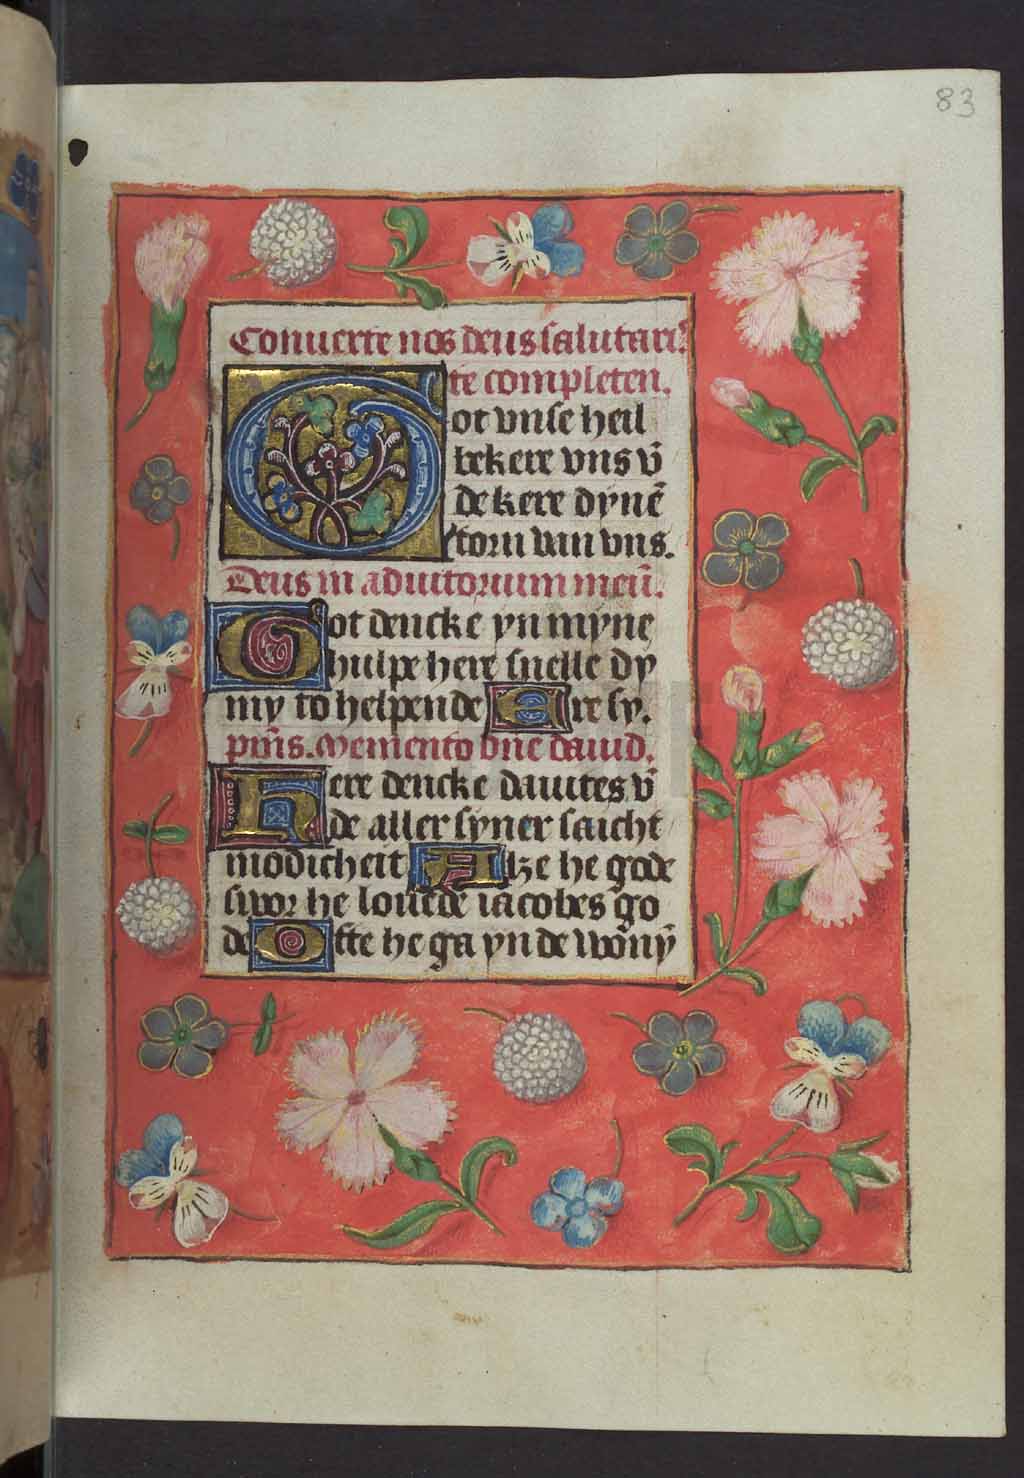 83
Conuerte nos deus salutaris
te completen.
Got vnse heil
bekere vns vn̄
de kere dynē
torn van vns.
Deus in adiutorium meū.
Got dencke yn myne
hulpe here snelle dy
my to helpende Ere sy.
pm̄s. Memento dn̄e dauid.
Here dencke dauites vn̄
de aller syner saicht
modicheit Alze he gode
swor he louede iacobes go
de Ofte he ga yn de wony̅